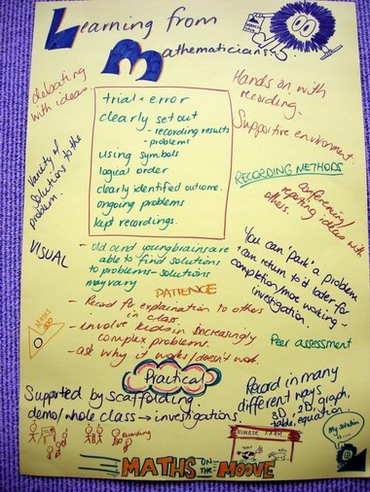 Learning from
Mathematicians
debating
with ideas.
Hands on with
recording.
Supportive environment.
trial + error
clearly set out
- recording results
- problems
using symbols
logical order
clearly identified outcome.
ongoing problems
kept recordings.
Variety of
solutions to the
problem.
RECORDING METHODS
Conferencing/
reporting ideas with
others.
VISUAL
- Old and young brains are
able to find solutions
to problems - solutions
may vary
You can 'park' a problem
+ can return to it later for
completion/more working -
investigation.
PATIENCE
MATHS
- Record for explaination to others
in class.
- involve kids in increasingly
complex problems.
- ask why it works/doesn't work.
Peer assessment
Practical
Supported by scaffolding
demo/whole class → investigations.
Record in many
different ways
3D, 2D, graph,
table, equation...
Recording
NUMBER FARM
My solution
is ....
MATHS ON THE MOOVE